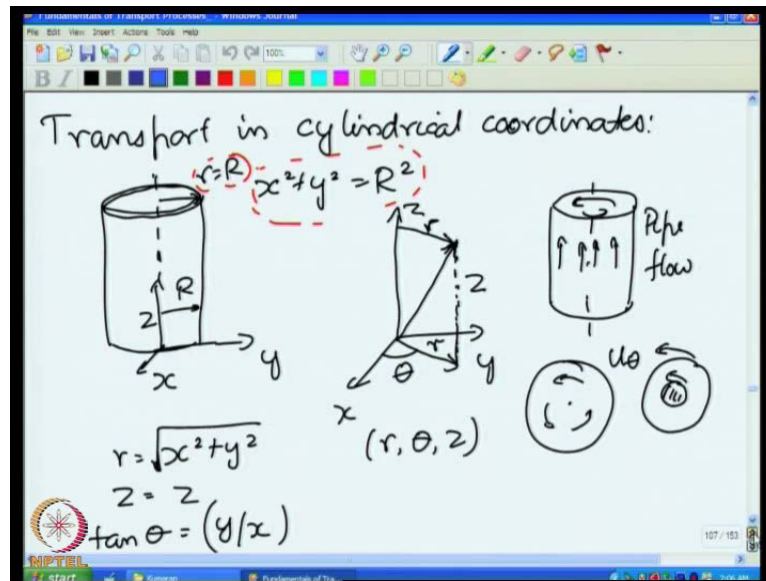 Fundamentals of Transport Processes_ - Windows Journal
File Edit View Insert Actions Tools Help
100%
B I
Transport in cylindrical coordinates:
r=R x²+y² = R²
z
r
Pipe
flow
R
z
z
r
y
y
θ
x
x
uθ
r = √x²+y²
(r, θ, z)
z = z
tan θ = (y/x)
NPTEL
107 / 153
start
Fundamentals of Tra...
2:06 AM